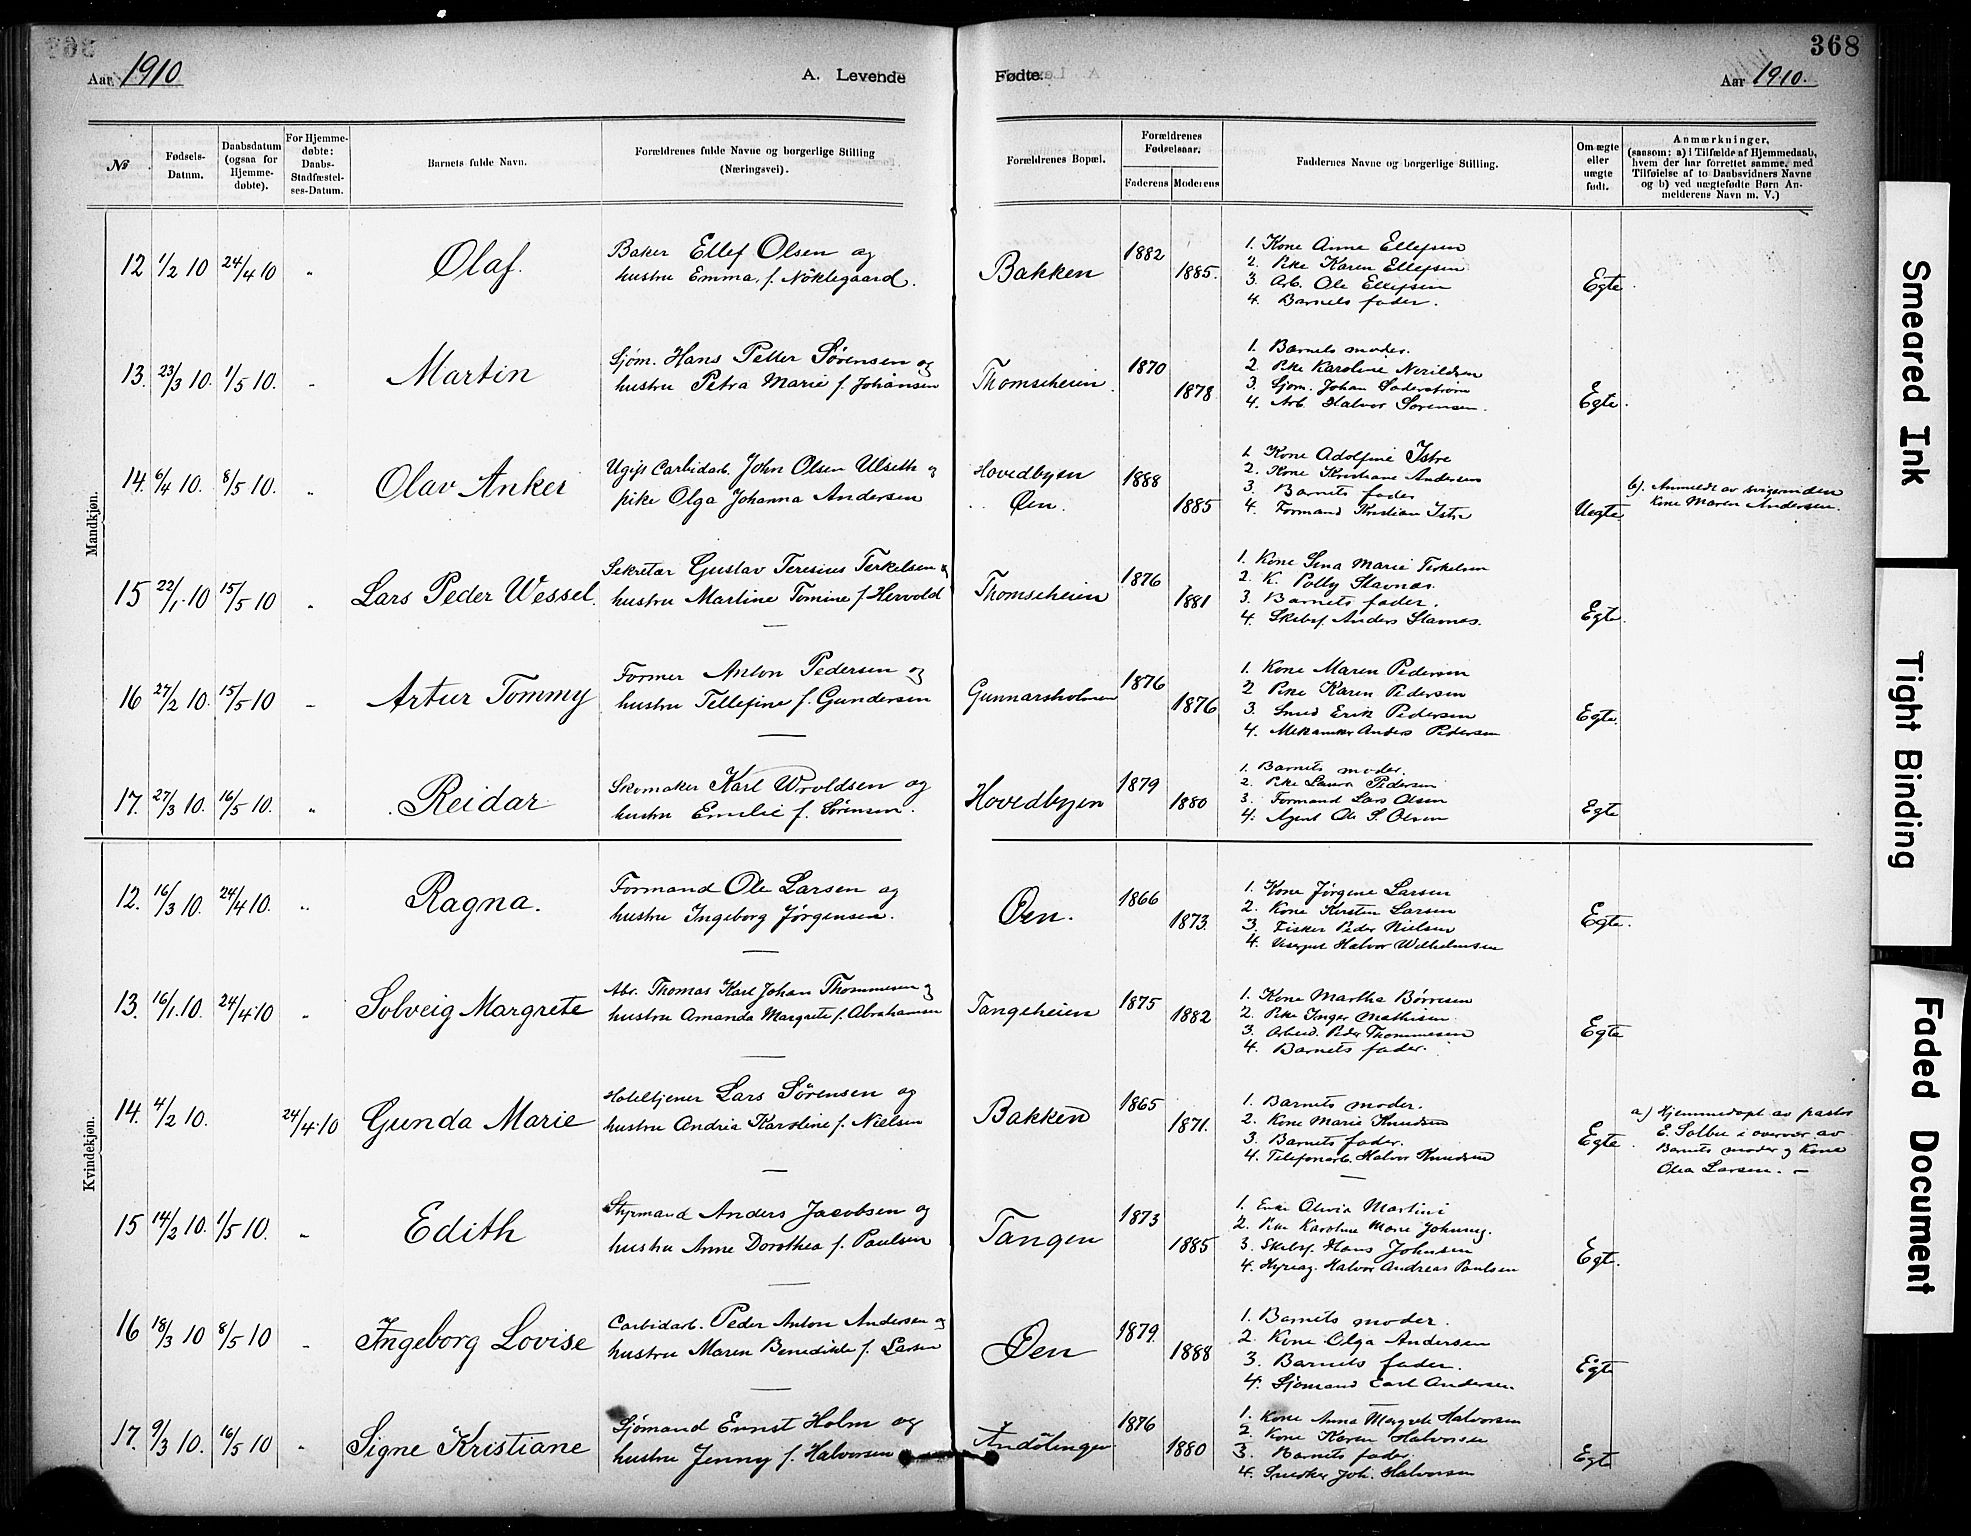 368
Aar 1910
A. Levende
Fødte.
Aar 1910.
№
Fødsels-Datum.
Daabsdatum (ogsaa for Hjemme-døbte).
For Hjemme-døbte: Daabs-Stadfæstel-ses-Datum.
Barnets fulde Navn.
Forældrenes fulde Navne og borgerlige Stilling (Næringsvei).
Forældrenes Bopæl.
Forældrenes Fødselsaar.
Faderens
Moderens
Faddernes Navne og borgerlige Stilling.
Om ægte eller uægte født.
Anmærkninger,
(saasom: a) i Tilfælde af Hjemmedaab,
hvem der har forrettet samme, med
Tilføielse af to Daabsvidners Navne
og b) ved uægtefødte Børn An-
melderens Navn m. V.)
Mandkjøn.
12 1/2 10 24/4 10 " Olaf. Baker Ellef Olsen og
hustru Emma, f. Nöklegaard. Bakken 1882 1885. Egte
1. Kone Anne Ellefsen
2. Pike Karen Ellefsen
3. Arb. Ole Ellefsen
4. Barnets fader.
13. 23/3 10. 1/5 10. " Martin Sjøm. Hans Petter Sörensen og
hustru Petra Marie f. Johansen Thomseheien 1870 1878 Egte.
1. Barnets moder.
2. Pike Karoline
3. Sjøm. Johan Søderstrøm
4. Arb. Halvor Sørensen.
14. 6/4 10. 8/5 10. " Olav Anker Ugift Carbidarb. John Olsen Ulseth og
pike Olga Johanna Andersen Hovedbyen
Øen. 1888 1885 Uegte
1. Kone Adolfine Istre
2. Kone Kristiane Andersen
3. Barnets fader
4. Formand Kristian Istre
b). Anmeldt av svigerinden
Kone Maren Andersen.
15 22/1 10 15/5 10 " Lars Peder Wessel. Sekretær Gustav Teresius Terkelsen og
hustru Martine Tomine f. Hervold Thomseheien 1876 1881 Egte.
1. Kone Sina Marie Terkelsen
2. K. Polly Stavnes
3. Barnets fader.
4. Skibsf. Anders Stavnes.
16 27/2 10. 15/5 10 " Artur Tommy Former Anton Pedersen og
hustru Tellefine f. Gundersen Gunnarsholmen 1876 1876 Egte.
1. Kone Maren Pedersen
2 Pike Karen Pedersen
3. Smed Erik Pedersen
4. Mekaniker Anders Pedersen
17. 27/3 10. 16/5 10. " Reidar Skomaker Karl Wroldsen og
hustru Emilie f. Sørensen. Hovedbyen 1879 1880 Egte
1. Barnets moder.
2. Pike Laura Pedersen
3. Formand Lars Olsen
4. Agent Ole S. Olsen
Kvindekjøn.
12. 16/3 10. 24/4 10. " Ragna. Formand Ole Larsen og
hustru Ingeborg Jørgensen. Øen. 1866 1873. Egte.
1. Kone Jørgine Larsen
2. Kone Kirsten Larsen
3. Fisker Peder Nielsen
4. Halvor Wilhelmsen
13. 16/1 10. 24/4 10 " Solveig Margrete Abr. Thomas Karl Johan Thommesen og
hustru Amanda Margrete f. Abrahamsen Tangeheien 1875 1882 Egte
1. Kone Martha Børresen
2. Pike Inger Mathisen
3. Arbeid. Peder Thommesen
4. Barnets fader.
14. 4/2 10. 24/4 10 Gunda Marie Hoteltjener Lars Sørensen og
hustru Andrea Karoline f. Nielsen Bakken 1865 1871. Egte.
1. Barnets moder.
2. Kone Marie Knudsen
3. Barnets fader.
4. Telefonarb. Halvor Knudsen
a) Hjemmedøpt av pastor
E. Solbu i overvær av
Barnets moder og Kone
Olea Larsen. —
15 14/2 10. 1/5 10. " Edith Styrmand Anders Jacobsen og
hustru Anne Dorothea f. Paulsen Tangen 1873 1885 Egte.
1. Enke Olivia Martini
2. Pike Karoline Marie
3. Skibsf. Hans Johnsen
4. Halvor Andreas Paulsen
16 18/3 10 8/5 10 " Ingeborg Lovise Carbidarb. Peder Anton Andersen og
hustru Maren Benedikte f. Larsen Øen 1879. 1888 Egte
1. Barnets moder.
2. Kone Olga Andersen
3. Barnets fader.
4. Sjømand Carl Andersen.
17. 9/3 10. 16/5 10 " Signe Kristiane Sjømand Ernst Holm og
hustru Jenny f. Halvorsen Andölingen 1876 1880 Egte
1. Kone Anna Margrete Halvorsen
2. Kone Karen Halvorsen
3. Barnets fader
4. Snedker Joh. Halvorsen
Smeared Ink
Tight Binding
Faded Document